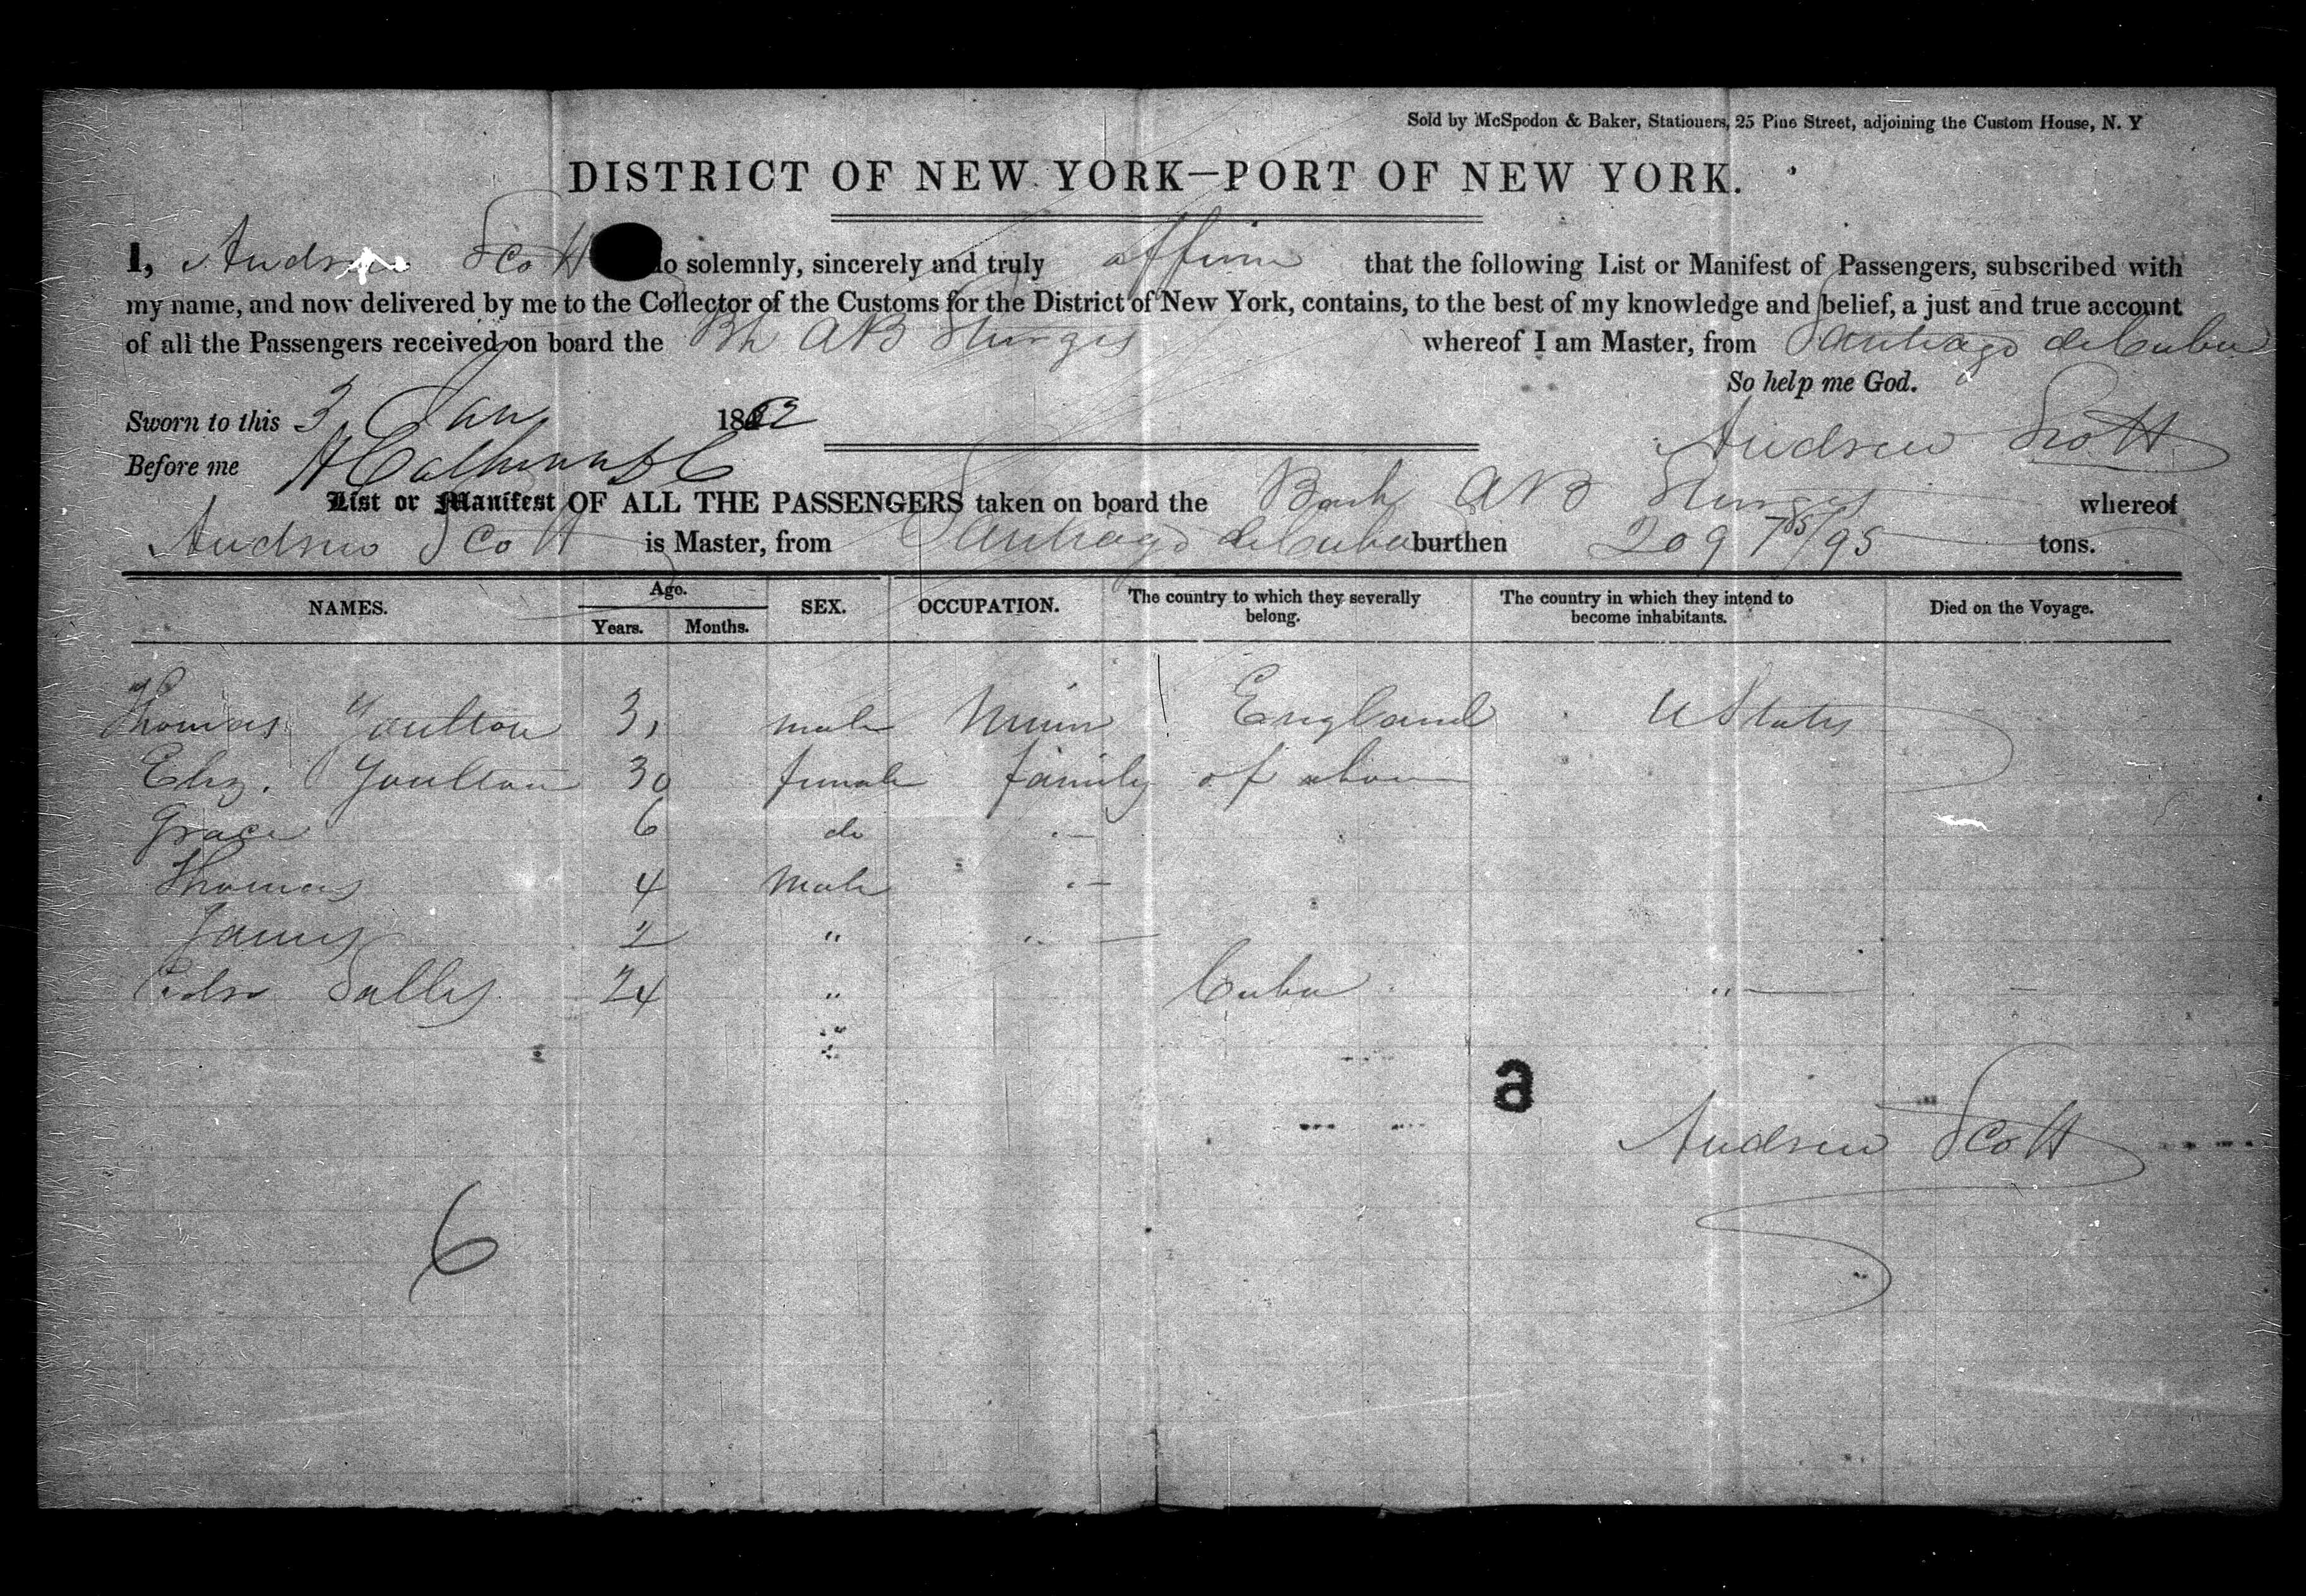 Sold by McSpedon & Baker, Stationers, 25 Pine Street, adjoining the Custom House, N. Y
DISTRICT OF NEW YORK—PORT OF NEW YORK.
I, Andrew Scott do solemnly, sincerely and truly affirm that the following List or Manifest of Passengers, subscribed with
my name, and now delivered by me to the Collector of the Customs for the District of New York, contains, to the best of my knowledge and belief, a just and true account
of all the Passengers received on board the Bk A B Sturges whereof I am Master, from Santiago de Cuba
So help me God.
Sworn to this 3 Jan 1862
Andrew Scott
Before me
List or Manifest OF ALL THE PASSENGERS taken on board the Bark A B Sturges whereof
Andrew Scott is Master, from Santiago de Cuba burthen 209 /95 tons.
NAMES. Age. Years. Months. SEX. OCCUPATION. The country to which they severally belong. The country in which they intend to become inhabitants. Died on the Voyage.
Thomas Youlton 31 male Miner England U States
Eliz. Youlton 30 female family of above
Grace 6 do
Thomas 4 Male
James 2 "
Pedro Salles 24 " Cuba "
a
Andrew Scott
6